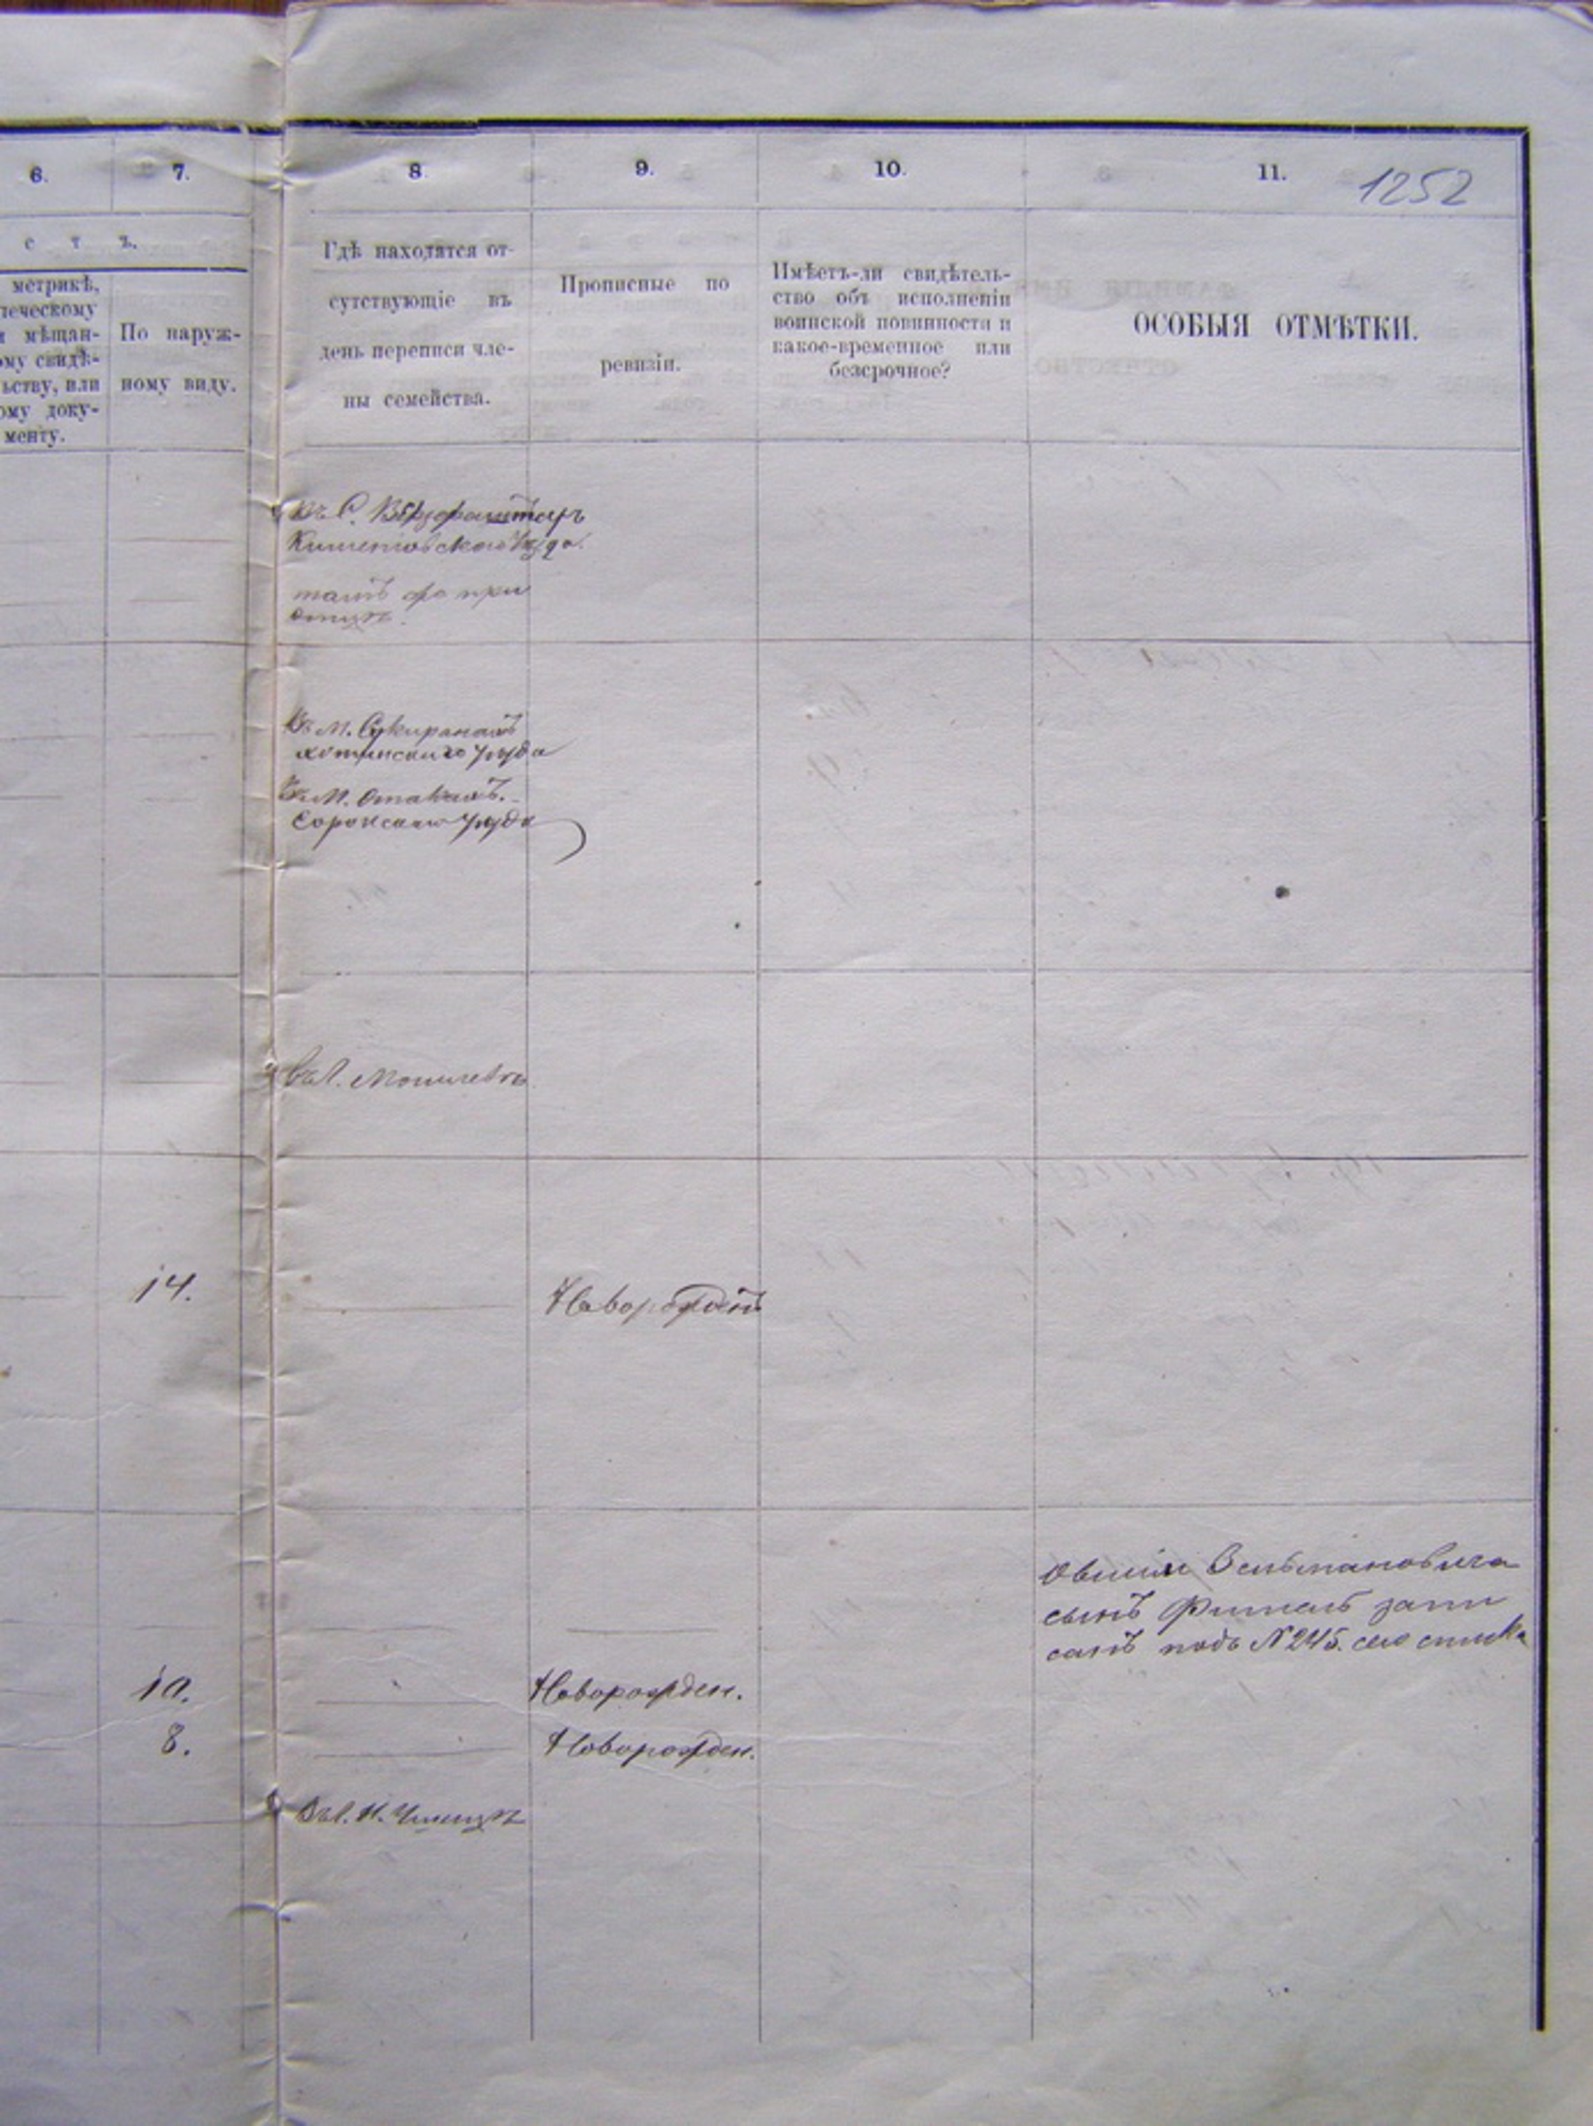 6.
7.
8
9.
10.
11.
1252
с т ъ.
метрикѣ,
мѣщан-
ому свидѣ-
ьству, или
ому доку-
менту.
По наруж-
ному виду.
Гдѣ находятся от-
сутствующіе въ
день переписи чле-
ны семейства.
Прописные по
ревизіи.
Имѣетъ-ли свидѣтель-
ство объ исполненіи
воинской повинности и
какое-временное или
безсрочное?
ОСОБЫЯ ОТМѢТКИ.
Въ С.
Кишеневскаго Уѣзда.
тамъ при
отцѣ.
Въ М. Секиранахъ
хотинскаго Уѣзда
Въ М. Отакахъ.
Сорокскаго Уѣзда
Въ Г. Могилевѣ
14.
Новорожден
сынъ запи
санъ подъ № 245. сего списка
10.
Новорожден.
8.
Новорожден.